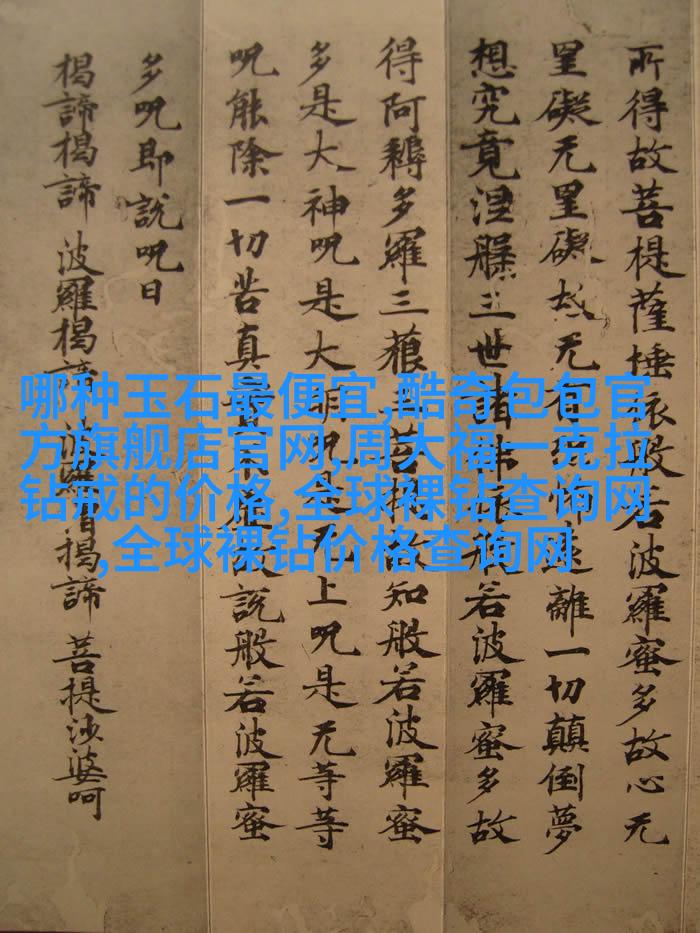 所得故菩提薩埵依般若波羅蜜多故心无
罣礙无罣礙故无有恐怖遠離一切顛倒夢
想究竟涅槃三世諸佛依般若波羅蜜多故
得阿耨多羅三藐三菩提故知般若波羅蜜
多是大神呪是大明呪是无上呪是无等等
呪能除一切苦真實不虛故說般若波羅蜜
多呪即說呪曰
揭諦揭諦 波羅揭諦 波羅僧揭諦 菩提沙婆呵
哪种玉石最便宜,酷奇包包官
方旗舰店官网,周大福一克拉
钻戒的价格,全球裸钻查询网
,全球裸钻价格查询网